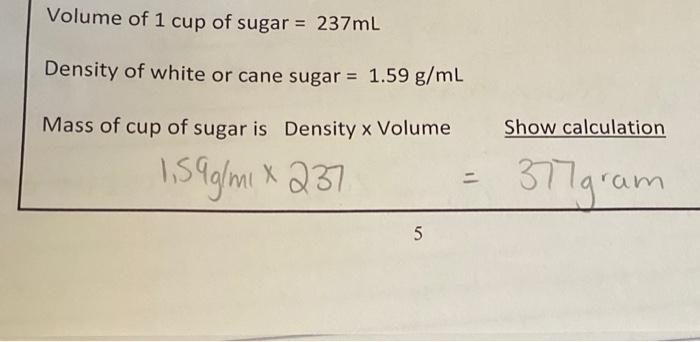 Volume of 1 cup of sugar = 237mL
Density of white or cane sugar = 1.59 g/mL
Mass of cup of sugar is Density x Volume Show calculation
1,59g/ml x 237 = 377gram
5